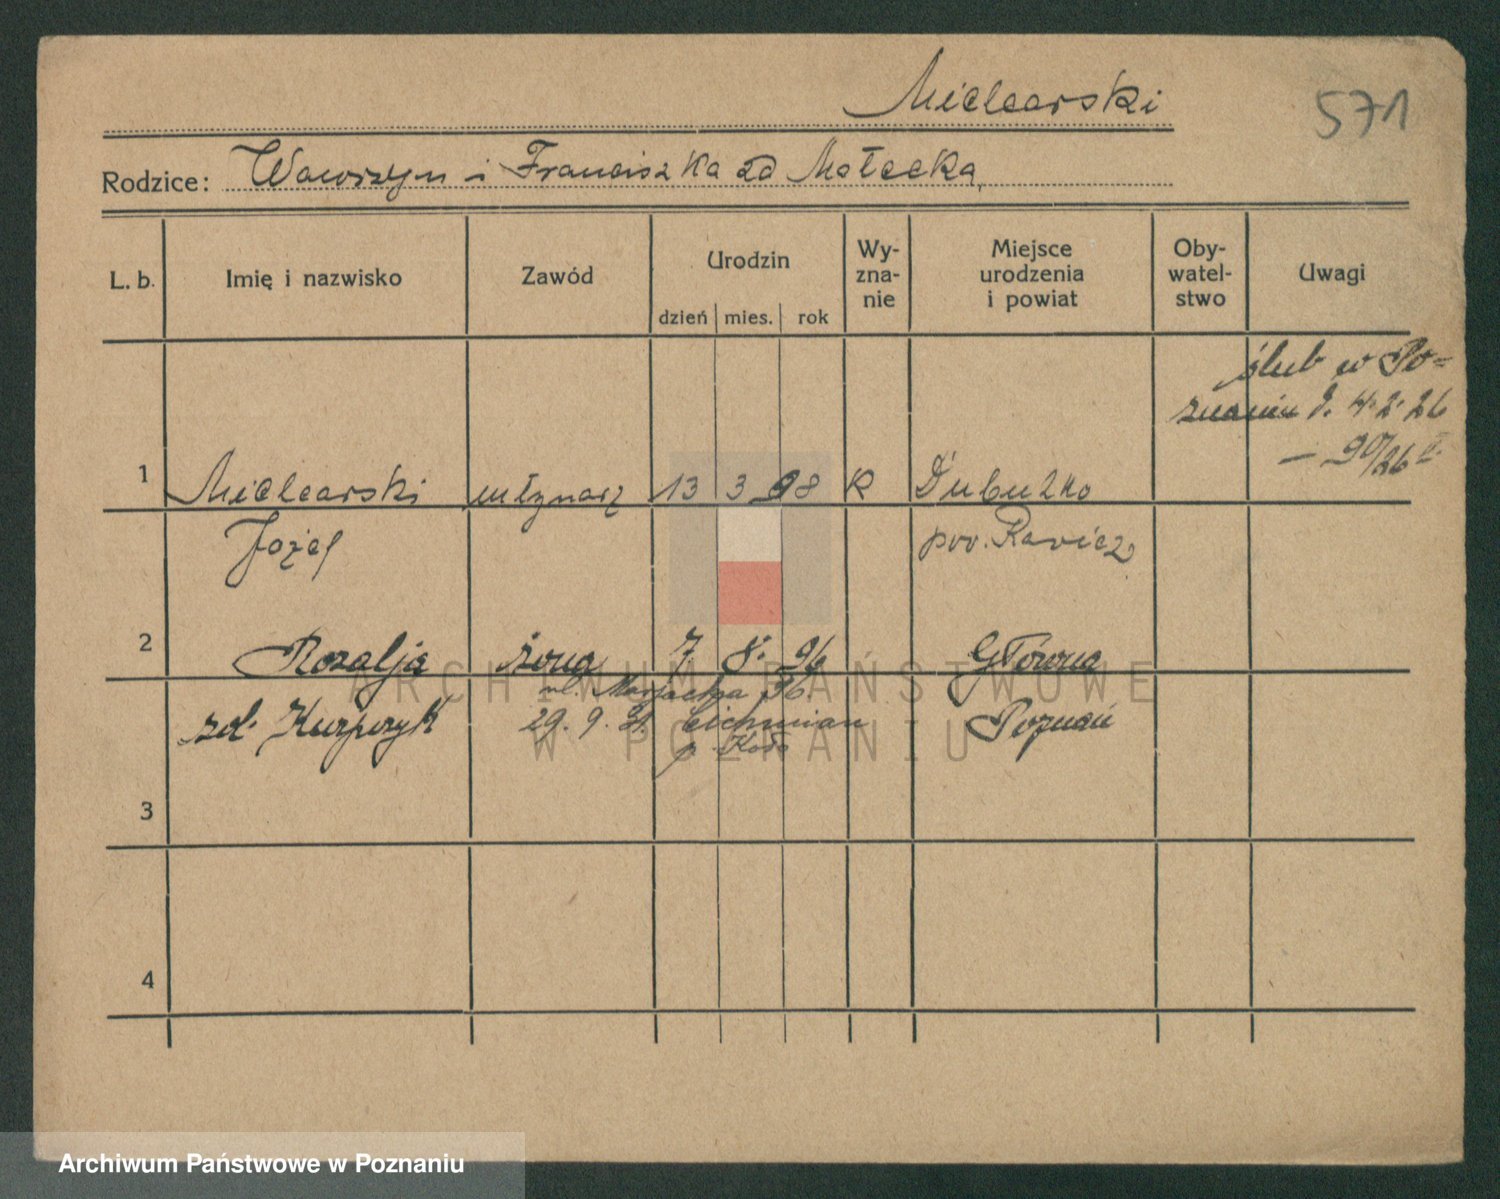 Mielcarski
571
Rodzice: Wawrzyn i Franciszka zd Małecka,
L. b. Imię i nazwisko Zawód Urodzin Wy- zna- nie Miejsce urodzenia i powiat Oby- watel- stwo Uwagi
dzień mies. rok
ślub w Po=
znaniu d. 4.2.26
— 90/26 II.
1 Mielcarski młynarz 13 3 98 K
Józef pow. Rawicz
2 Rozalja żona 7 8. 96 Główna
zd. Kurpczyk Poznań
29. 9. 31.
p. Koło
3
4
ARCHIWUM PAŃSTWOWE
W POZNANIU
Archiwum Państwowe w Poznaniu